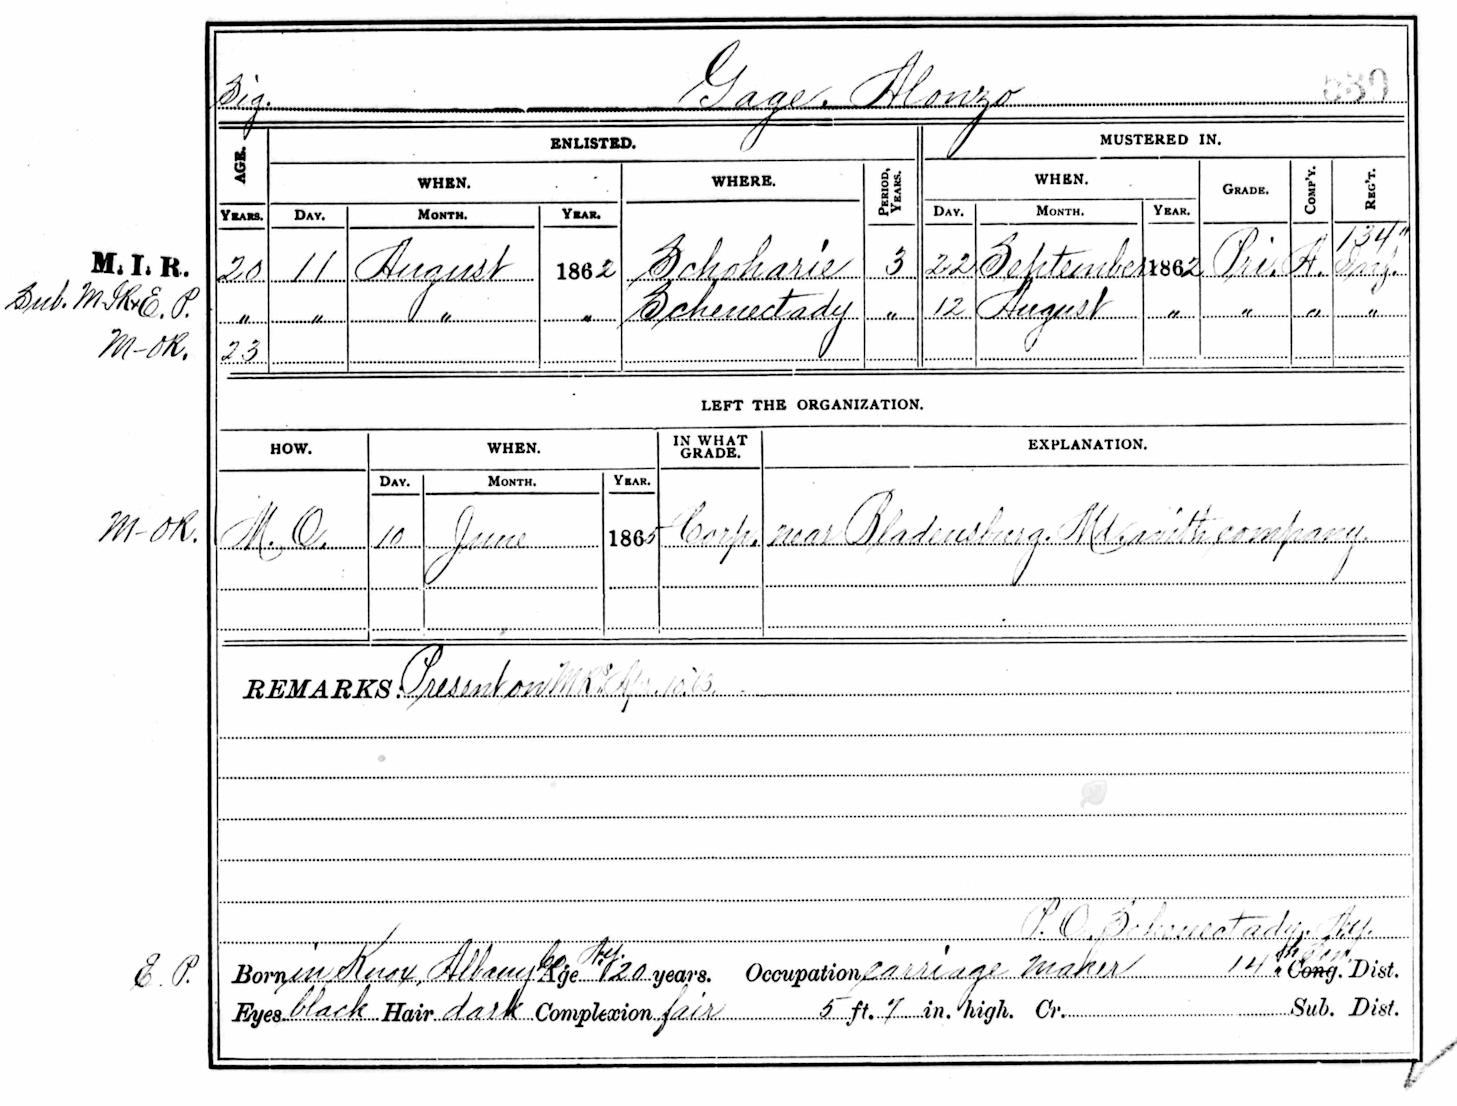 Sig. Gage, Alonzo 539
AGE. ENLISTED. MUSTERED IN.
WHEN. WHERE. PERIOD, YEARS. WHEN. GRADE. COMP'Y. REG'T.
YEARS. DAY. MONTH. YEAR. DAY. MONTH. YEAR.
M. I. R. 20 11 August 1862 Schoharie 3 22 September 1862 Pri. A. 134" Inf.
Sub. M I R & E. P. " " " " Schenectady " 12 August " " " "
M-OR. 23
LEFT THE ORGANIZATION.
HOW. WHEN. IN WHAT GRADE. EXPLANATION.
DAY. MONTH. YEAR.
M-OR. M. O. 10 June 1865 Corp. near Bladensburg. Md. with company.
REMARKS: Present on MR's Apr. 10.'63.
P. O. Schenectady. Ny.
E. P. Born in Knox, Albany Co. Ny. Age 20 years. Occupation carriage maker 14th Sen. Cong. Dist.
Eyes black Hair dark Complexion fair 5 ft. 7 in. high. Cr. Sub. Dist.